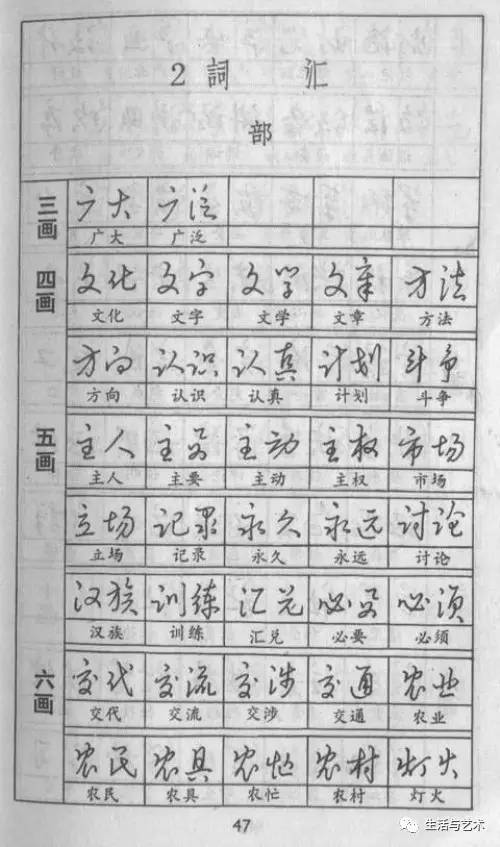 2 詞 汇
部
三画
广大 广泛
广大 广泛
四画
文化 文字 文学 文章 方法
文化 文字 文学 文章 方法
方向 认识 认真 计划 斗争
方向 认识 认真 计划 斗争
五画
主人 主要 主动 主权 市场
主人 主要 主动 主权 市场
立场 记录 永久 永远 讨论
立场 记录 永久 永远 讨论
汉族 训练 汇兑 必要 必须
汉族 训练 汇兑 必要 必须
六画
交代 交流 交涉 交通 农业
交代 交流 交涉 交通 农业
农民 农具 农忙 农村 灯火
农民 农具 农忙 农村 灯火
47
生活与艺术